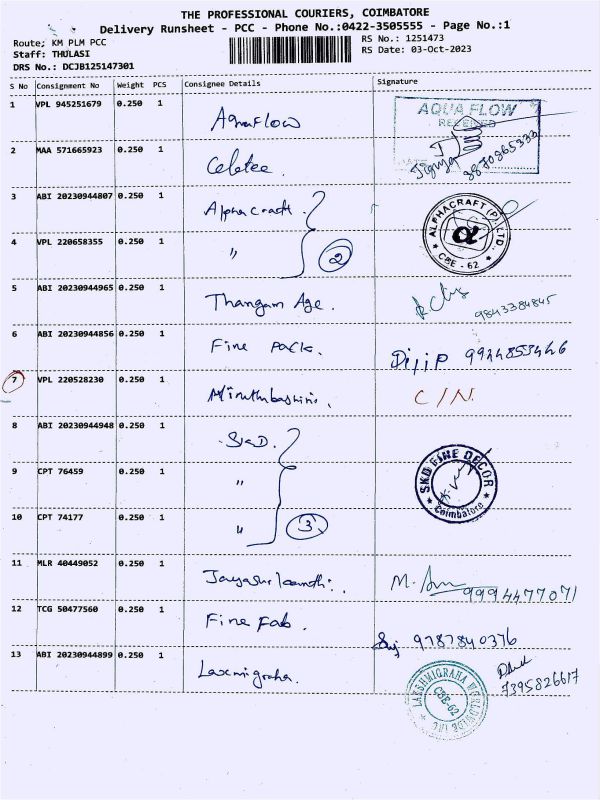 THE PROFESSIONAL COURIERS, COIMBATORE
Delivery Runsheet - PCC - Phone No.:0422-3505555 - Page No.:1
Route; KM PLM PCC
RS No.: 1251473
Staff: THULASI
RS Date: 03-Oct-2023
DRS No.: DCJB125147301
S No Consignment No Weight PCS Consignee Details Signature
1 VPL 945251679 0.250 1 Aquaflow AQUA FLOW RECEIVED
2 MAA 571665923 0.250 1
3 ABI 20230944807 0.250 1 Alphacraft ALPHACRAFT (P) LTD. CBE - 62
4 VPL 220658355 0.250 1 " 2
5 ABI 20230944965 0.250 1 Thangam Age. 9843384845
6 ABI 20230944856 0.250 1 Fine Pack. Dijip 9924853446
7 VPL 220528230 0.250 1 C/N.
8 ABI 20230944948 0.250 1 SKD. SKD FINE DECOR Coimbatore
9 CPT 76459 0.250 1 "
10 CPT 74177 0.250 1 " 3
11 MLR 40449052 0.250 1 9994477071
12 TCG 50477560 0.250 1 Fine Fab. 9787840376
13 ABI 20230944899 0.250 1 Laxmigraha. LAKSHMIGRAHA WORLDWIDE INC CBE-62 7395826617